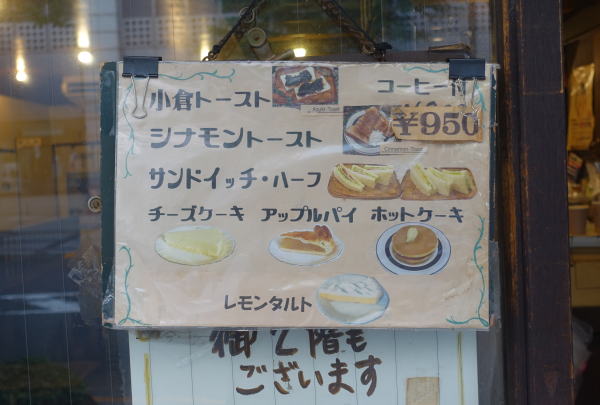 小倉トースト コーヒー付
シナモントースト ¥950
サンドイッチ・ハーフ
チーズケーキ アップルパイ ホットケーキ
レモンタルト
御2階も
ございます